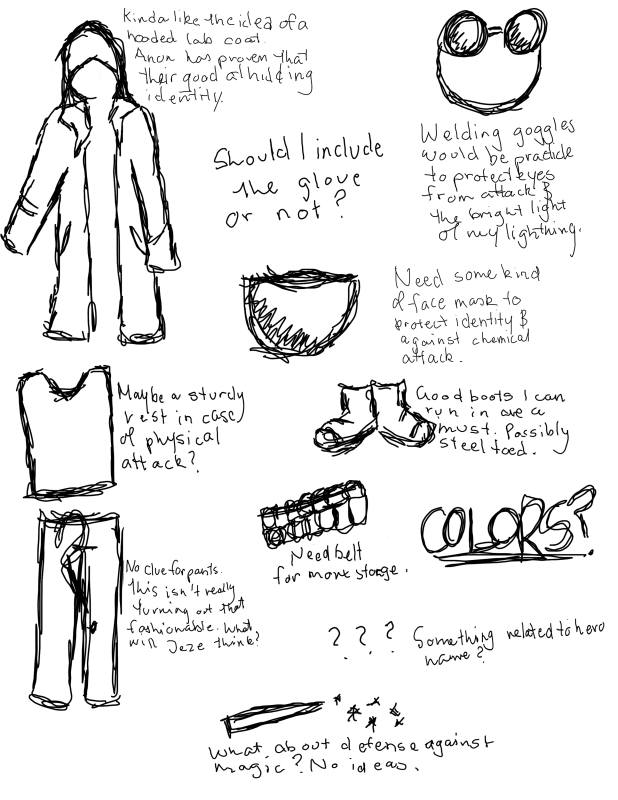 Kinda like the idea of a
hooded lab coat.
Anon has proven that
their good at hiding
identity.
Welding goggles
would be practicle
to protect eyes
from attack &
the bright light
of my lightning.
Should I include
the glove
or not?
Need some kind
of face mask to
protect identity &
against chemical
attack.
Maybe a sturdy
vest in case
of physical
attack?
Good boots I can
run in are a
must. Possibly
steel toed.
Need belt
for more storge.
COLORS?
No clue for pants.
This isn't really
turning out that
fashionable. What
will Jeze think?
? ? ? Something related to hero
name?
What about defense against
magic? No ideas.